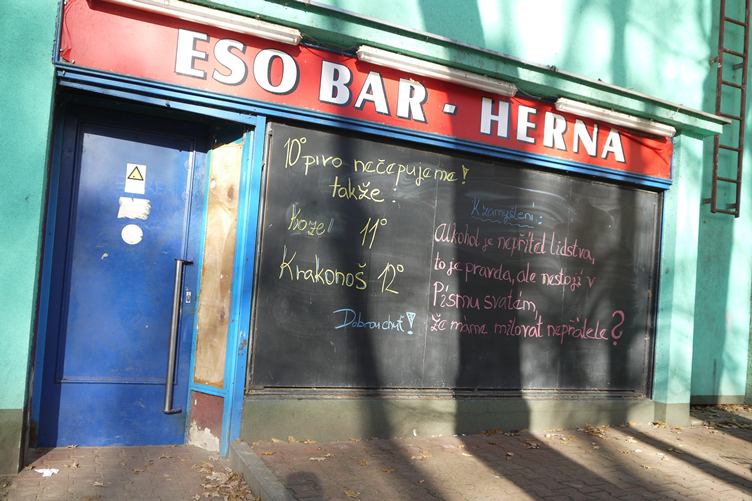 ESO BAR - HERNA
10° pivo nečepujeme!
takže:
Kozel 11°
Krakonoš 12°
Dobrou chuť!
K zamyšlení:
Alkohol je nepřítel lidstva,
to je pravda, ale nestojí v
Písmu svatém,
že máme milovat nepřátele?